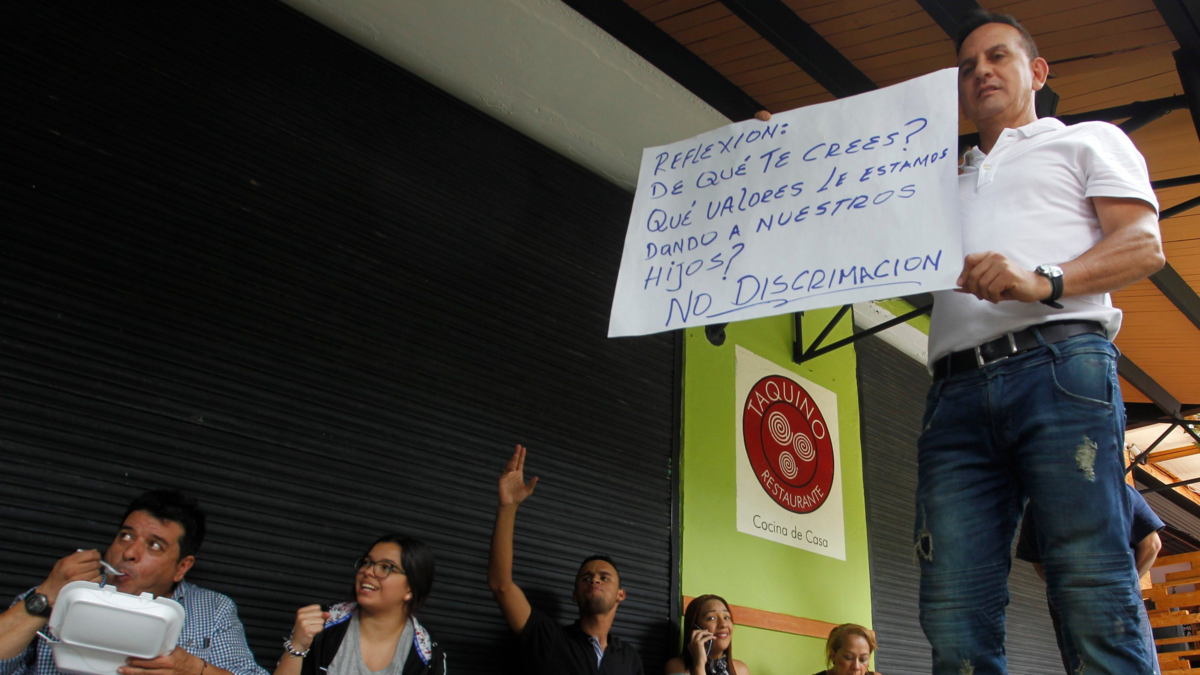 REFLEXION:
DE QUÉ TE CREES?
QUÉ VALORES LE ESTAMOS
DANDO A NUESTROS
HIJOS?
NO DISCRIMACION
TAQUINO
RESTAURANTE
Cocina de Casa